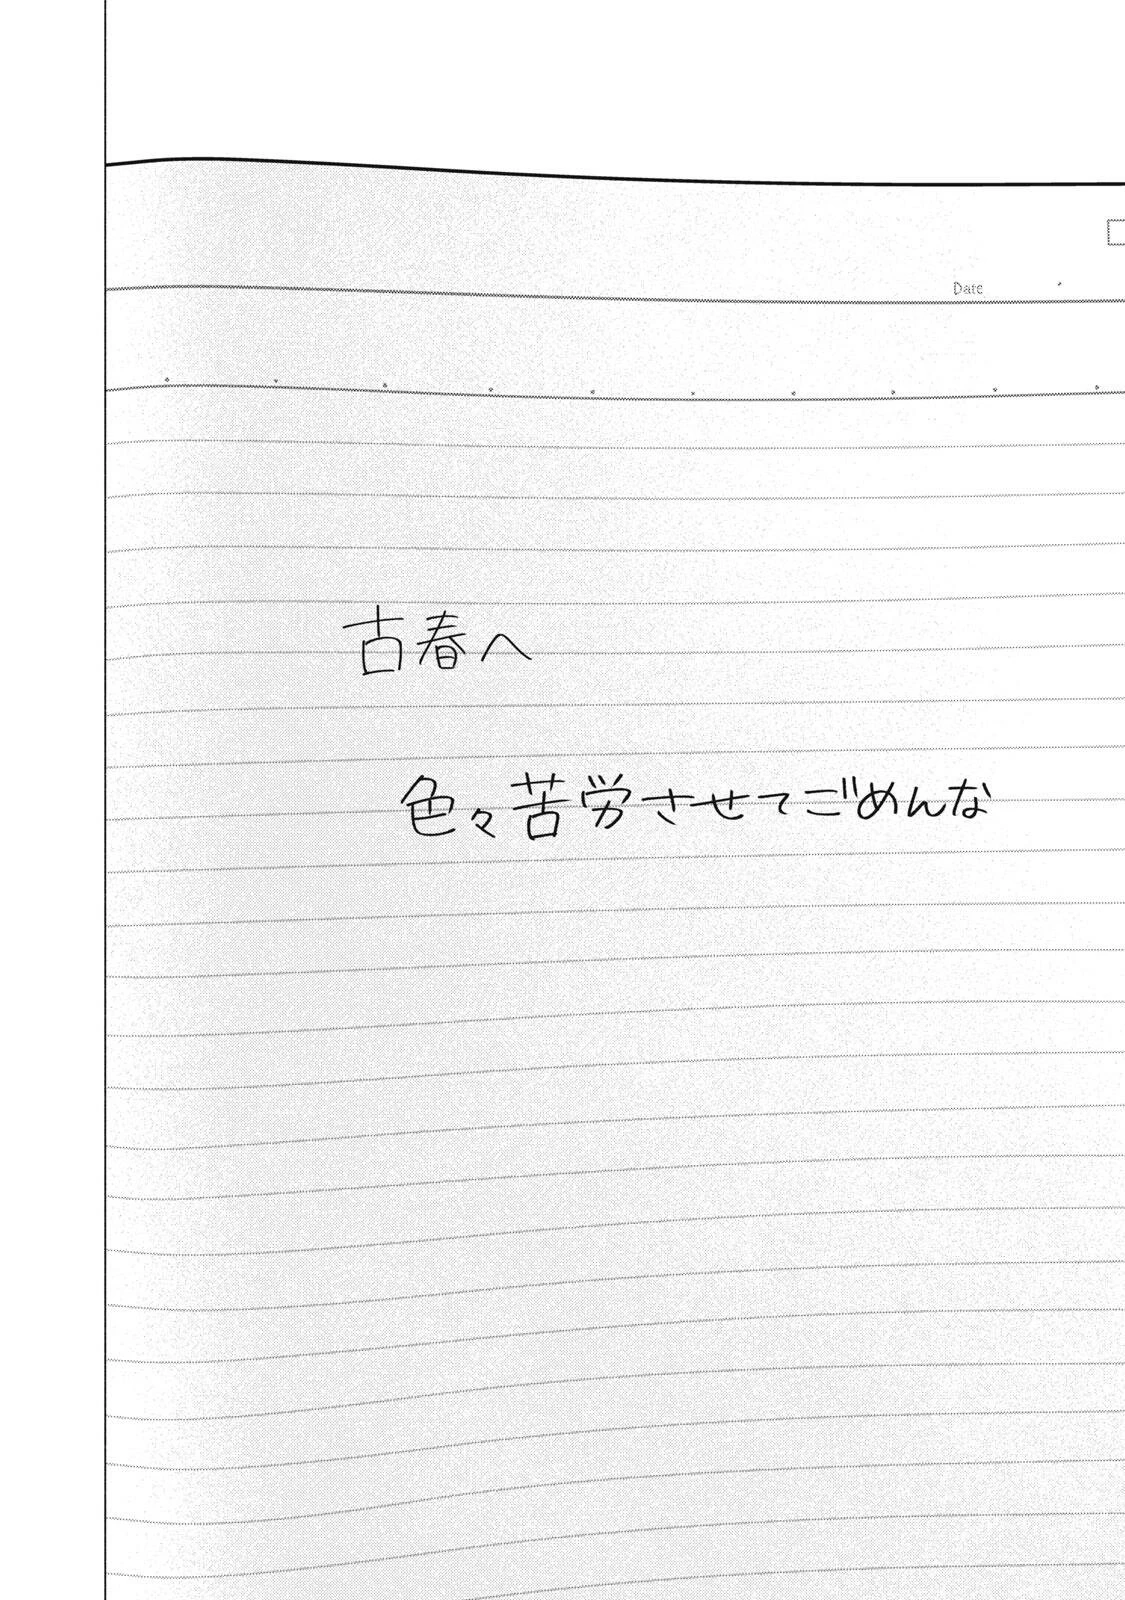 Date
古春へ
色々苦労させてごめんな